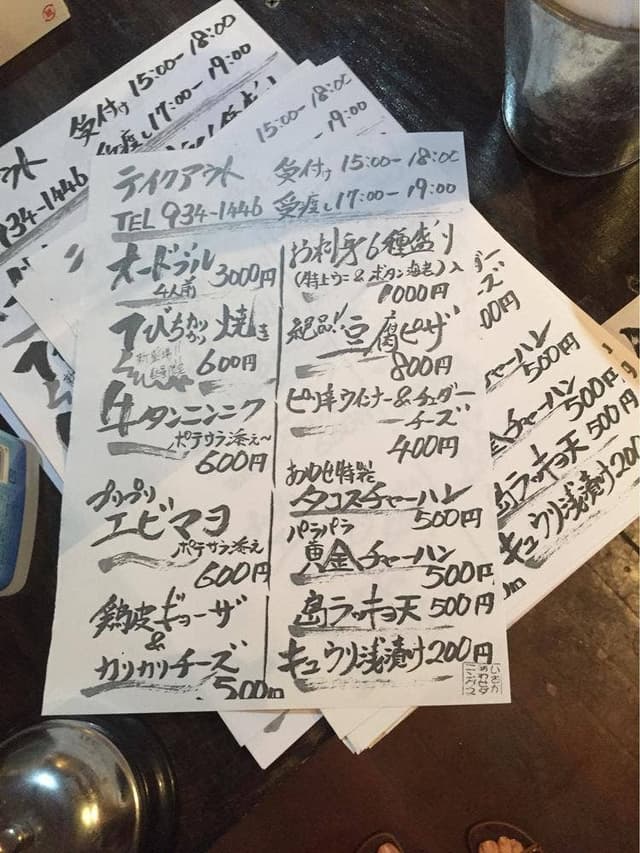 テイクアウト 受付け 15:00-18:00
TEL 934-1446 受渡し17:00-19:00
オードブル
4人前 3000円
てびちカリカリ焼き
600円
牛タンニンニク
ポテサラ添え~
600円
プリプリ
エビマヨ
ポテサラ添え
600円
鶏皮ギョーザ
&
カリカリチーズ
500円
お刺身6種盛り
(特上ウニ&ボタン海老)入
1000円
絶品!!豆腐ピザ
800円
ピリ辛ウインナー&チェダー
チーズ
400円
あわせ特製
タコスチャーハン
500円
パラパラ
黄金チャーハン
500円
島ラッキョ天 500円
キュウリ浅漬け200円
受付け 15:00-18:00
17:00-19:00
934-1446
15:00-18:00
19:00
ダー
ーズ
00円
チャーハン
500円
金チャーハン
500円
島ラッキョ天 500円
キュウリ浅漬け200円